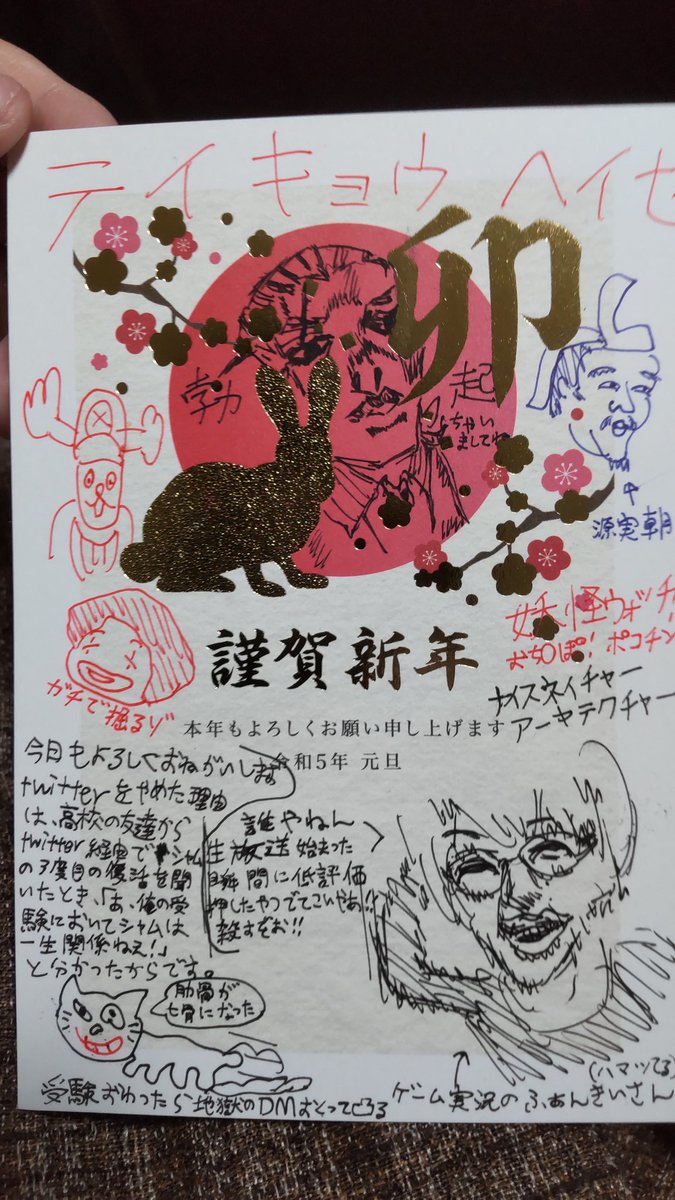 テイキョウ ヘイセ
卯
勃 起
しちゃい
ましてね
源実朝
妖怪ウォッチ
おち〇ぽ!ポコチン
ガチで掘るゾ
謹賀新年
ナイスネイチャー
アーキテクチャー
本年もよろしくお願い申し上げます
令和5年 元旦
今日もよろしくおねがいします
twitterをやめた理由
は、高校の友達から
twitter経由でシャム
の3度目の復活を聞
いたとき、「あ、俺の受
験においてシャムは
一生関係ねえ!」
と分かったからです。
誰やねん
生放送始まった
瞬間に低評価
押したやつでてこいやあ!!
殺すぞお!!
肋骨が
七骨になった
受験おわったら地獄のDMおくってごろる
(ハマってる)
ゲーム実況のふぁんきぃさん